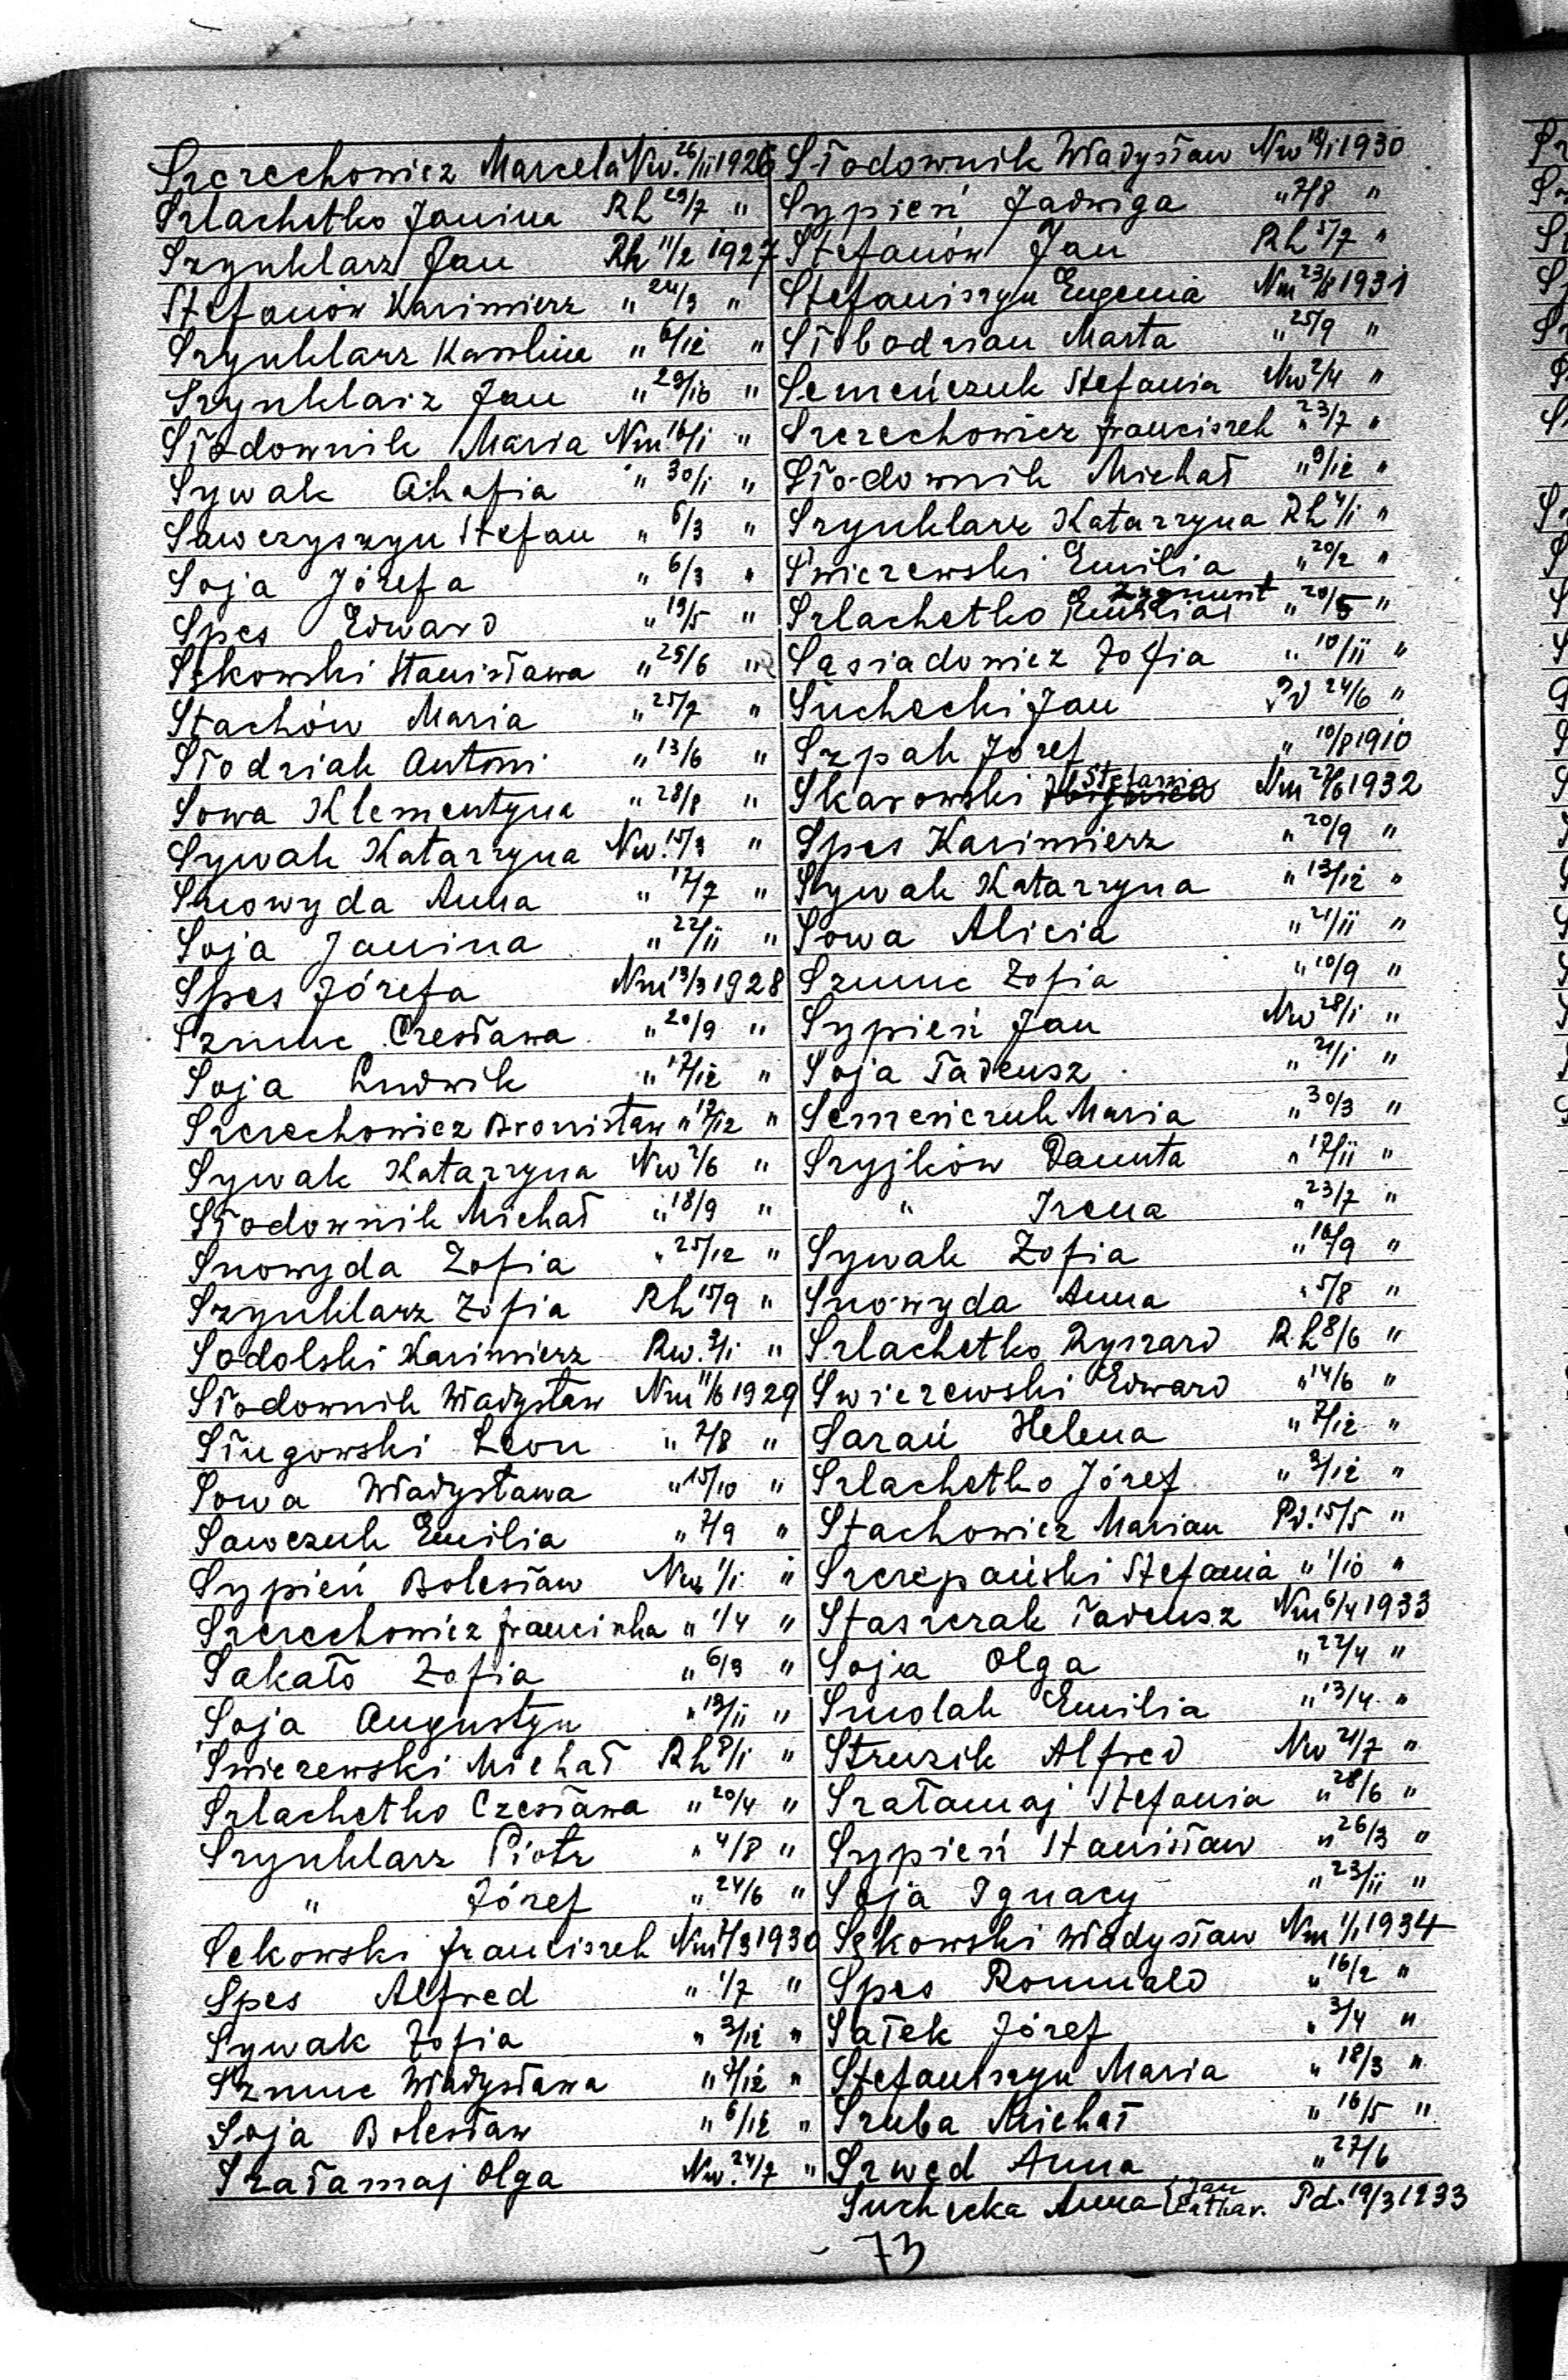 Szczechowicz Marcela Nw. 26/II 1926
Szlachetko Janina Rh 29/7 "
Szynklarz Jan Rh 11/2 1927
Stefanów Kazimierz " 24/3 "
Szynklarz Karolina " 6/12 "
Szynklarz Jan " 29/10 "
Słodownik Maria Nm 16/1 "
Sywak Ahafia " 30/1 "
Sawczyszyn Stefan " 6/3 "
Soja Józefa " 6/3 "
Spes Edward " 19/5 "
Sękowski Stanisława " 25/6 "
Stachów Maria " 25/7 "
Słodziak Antoni " 13/6 "
Sowa Klementyna " 28/8 "
Sywak Katarzyna Nw. 15/3 "
Snowyda Anna " 17/7 "
Soja Janina " 22/II "
Spes Józefa Nm 13/3 1928
Szmuc Czesława " 20/9 "
Soja Ludwik " 17/12 "
Szczechowicz Bronisław " 17/12 "
Sywak Katarzyna Nw 7/6 "
Słodownik Michał " 18/9 "
Snowyda Zofia " 25/12 "
Szynklarz Zofia Rh 15/9 "
Sodolski Kazimierz Rw. 3/1 "
Słodownik Władysław Nm 11/6 1929
Sługowski Leon " 7/8 "
Sowa Władysława " 15/10 "
Sawczuk Emilia " 7/9 "
Sypień Bolesław Nw 1/1 "
Szczechowicz Franciszka " 1/4 "
Sakało Zofia " 6/3 "
Soja Augustyn " 13/II "
Świczewski Michał Rh 8/1 "
Szlachetko Czesława " 20/4 "
Szynklarz Piotr " 4/8 "
" Józef " 24/6 "
Sękowski Franciszek Nm 7/3 1930
Spes Alfred " 1/7 "
Sywak Zofia " 3/12 "
Szmuc Władysława " 7/12 "
Soja Bolesław " 6/12 "
Szałamaj Olga Nw. 24/7 "
Słodownik Władysław Nw 18/1 1930
Sypień Jadwiga " 7/8 "
Stefanów Jan Rh 5/7 "
Stefaniszyn Eugenia Nm 23/8 1931
Słobodzian Marta " 25/9 "
Semeńczuk Stefania Nw 2/4 "
Szczechowicz Franciszek " 23/7 "
Słodownik Michał " 9/12 "
Szynklarz Katarzyna Rh 4/1 "
Świczewski Emilia " 20/2 "
Szlachetko Emilia Zygmunt " 20/5 "
Sąsiadowicz Zofia " 10/II "
Suchecki Jan Pd 24/6 "
Szpak Józef " 10/8 1910
Skarowski Stefania Nm 27/6 1932
Spes Kazimierz " 20/9 "
Sywak Katarzyna " 13/12 "
Sowa Alicia " 21/II "
Szmuc Zofia " 10/9 "
Sypień Jan Nw 28/1 "
Soja Tadeusz " 21/1 "
Semeńczuk Maria " 30/3 "
Szyjków Danuta " 17/II "
" Irena " 23/7 "
Sywak Zofia " 16/9 "
Snowyda Anna " 5/8 "
Szlachetko Ryszard Rh 8/6 "
Świczewski Edward " 14/6 "
Sarań Helena " 7/12 "
Szlachetko Józef " 3/12 "
Stachowicz Marian Pd. 15/5 "
Szczepański Stefania " 1/10 "
Staszczak Tadeusz Nm 6/4 1933
Soja Olga " 22/4 "
Smolak Emilia " 13/4 "
Struzik Alfred Nw 21/7 "
Szałamaj Stefania " 28/6 "
Sypień Stanisław " 26/3 "
Soja Ignacy " 23/II "
Sękowski Władysław Nm 1/1 1934
Spes Romuald " 16/2 "
Sałek Józef " 3/4 "
Stefaniszyn Maria " 18/3 "
Szuba Michał " 16/5 "
Szwed Anna " 27/6
Suchecka Anna (Jan Kathar. Pd. 19/3 1933
73